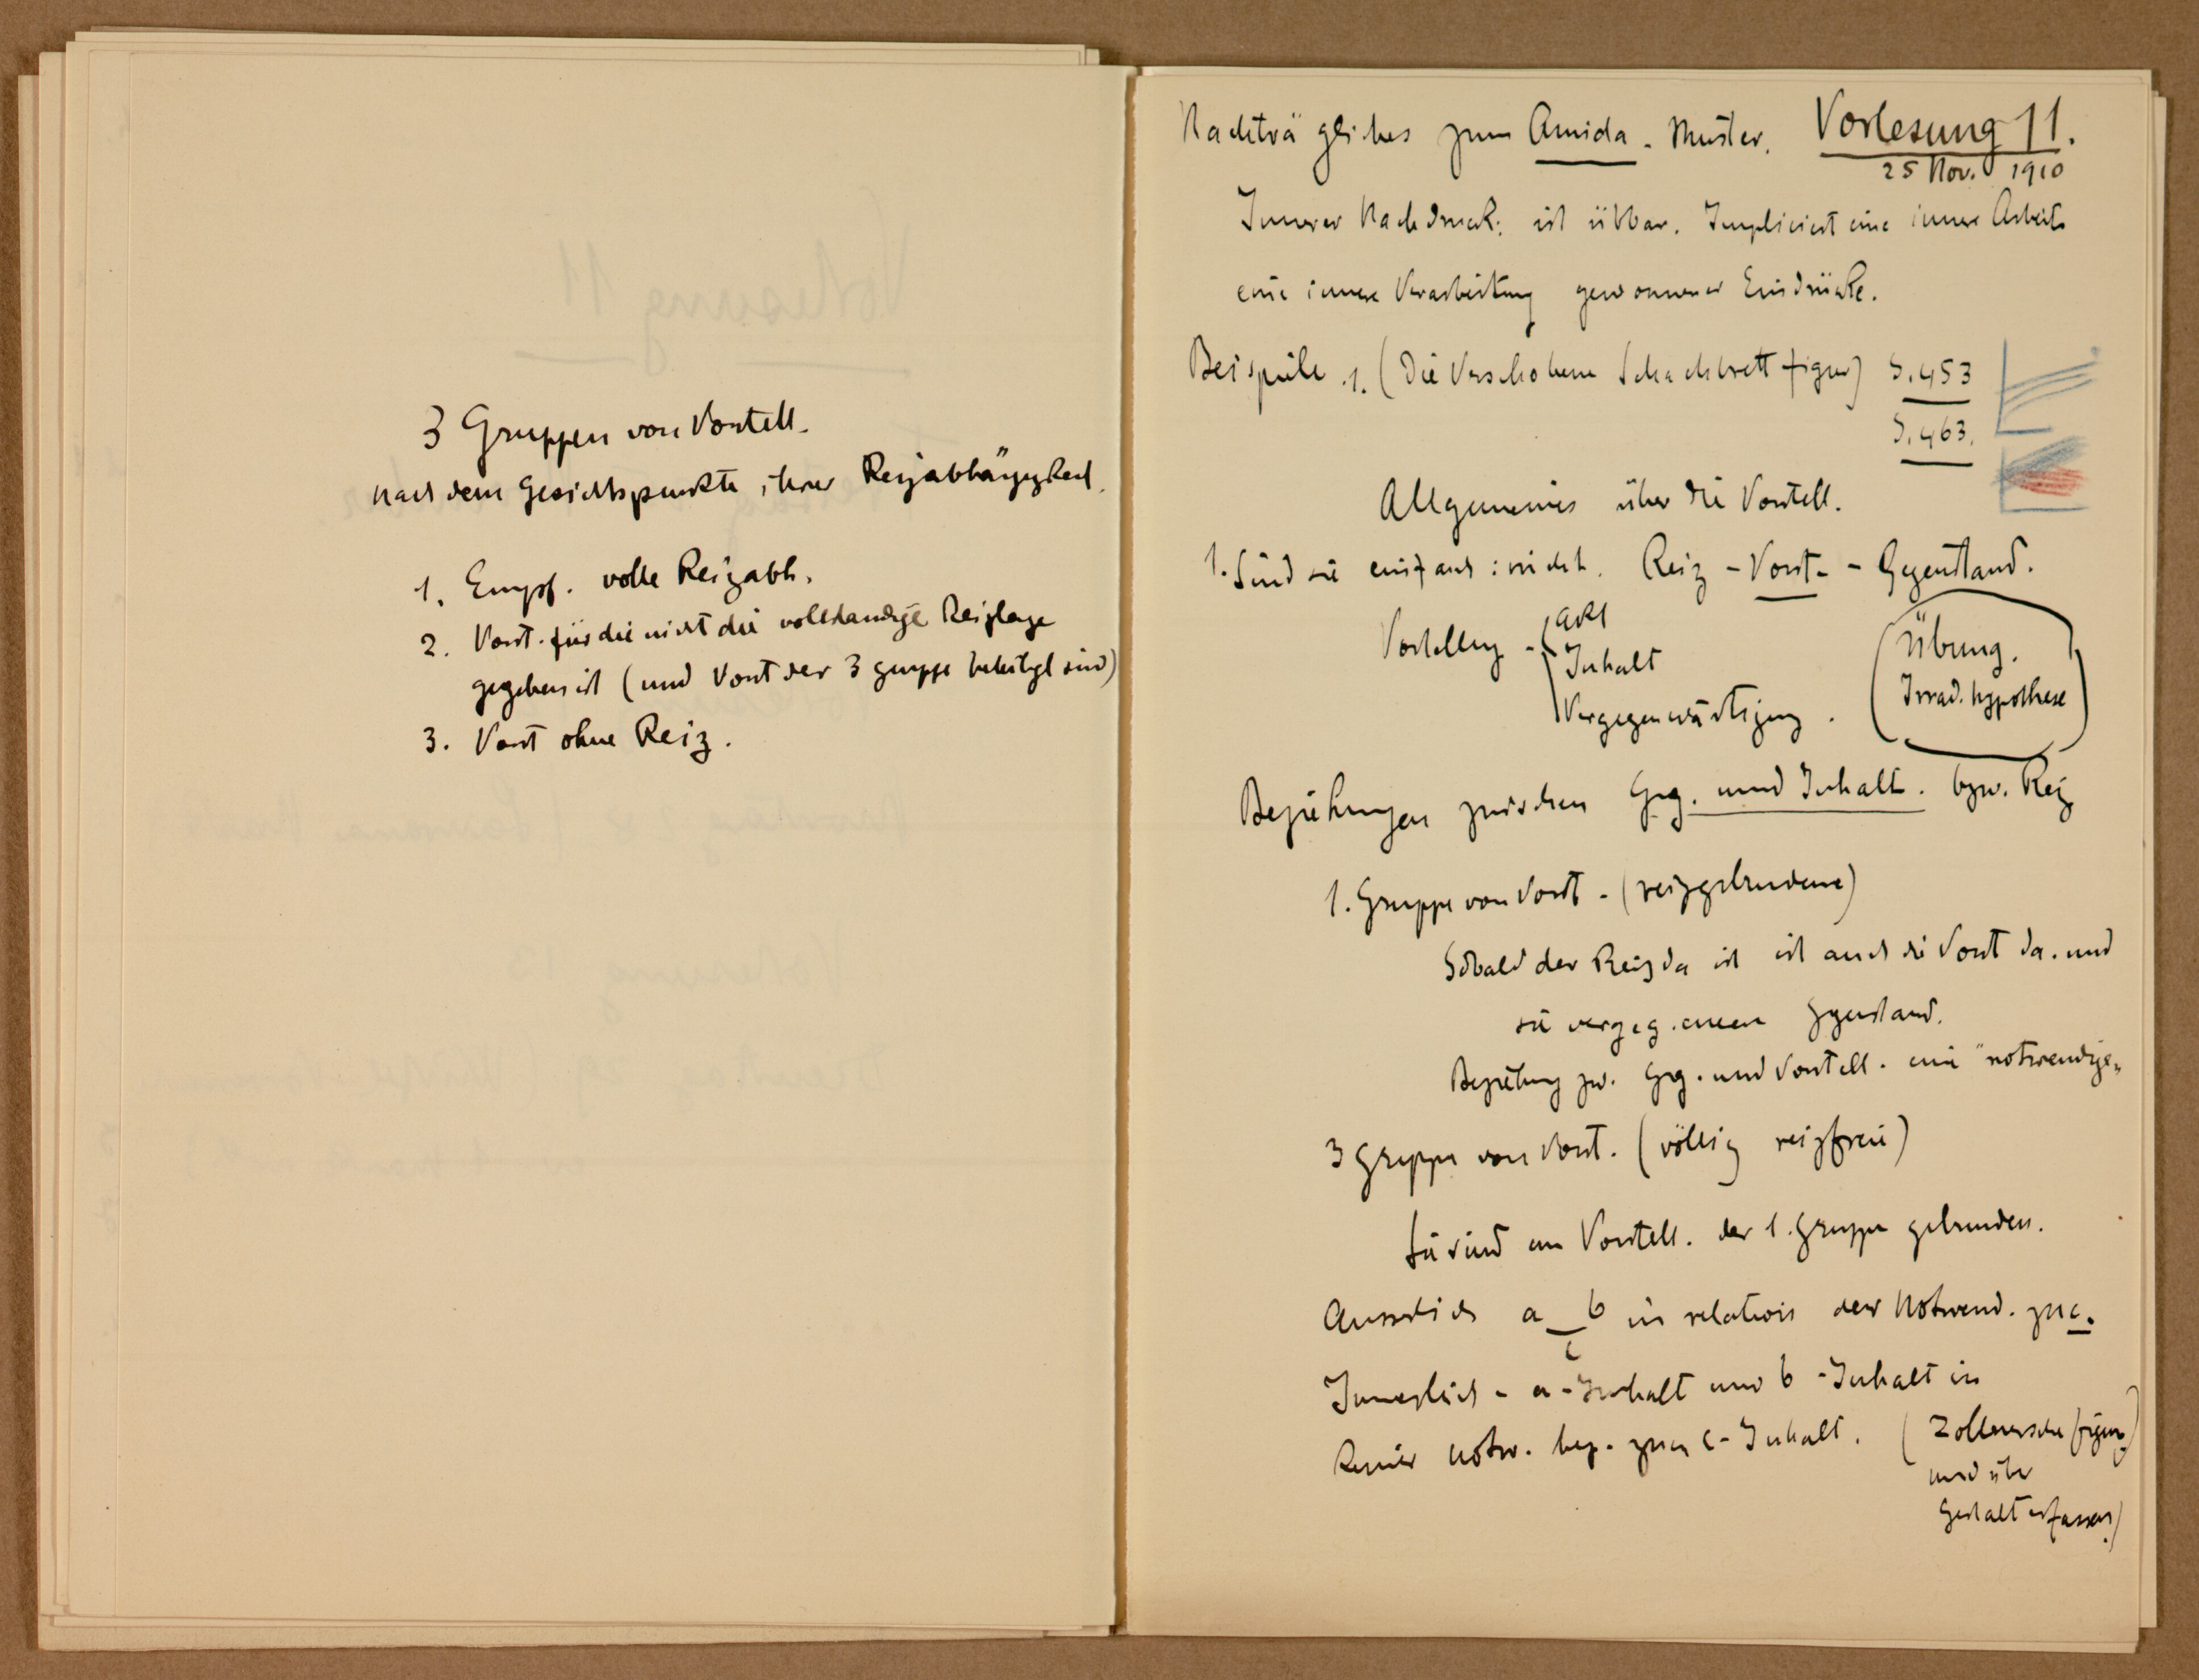 3 Gruppen von Vorstell.
nach dem Gesichtspunkte ihrer Reizabhängigkeit.
1. Empf. volle Reizabh.
2. Vorst. für die nicht die vollstandige Reizlage
gegeben ist (und Vorst der 3 gruppe beteiligt sind)
3. Vorst ohne Reiz.
Nachträgliches zum Amida - Muster. Vorlesung 11.
25 Nov. 1910
Innerer Nachdruck: ist übbar. Impliciert eine innere Arbeit
eine innere Verarbeitung gewonnener Eindrücke.
Beispiele .1. (Die Verschobene Schachbrettfigur) S. 453
S. 463.
Allgemeines über die Vorstell.
1. Sind sie einfach: nicht. Reiz - Vorst. - Gegenstand.
Vorstellung - Akt
Inhalt
Vergegenwärtigung.
Übung.
Irrad. hypothese
Beziehungen zwischen Geg. und Inhalt. bzw. Reiz
1. Gruppe von Vorst - (reizgebundene)
Sobald der Reiz da ist ist auch die Vorst da. und
sie vergeg. einen Ggenstand.
Beziehung zw. Geg. und Vorstell. eine "notwendige"
3 Gruppe von Vorst. (völlig reizfreie)
Sie sind an Vorstell. der 1. Gruppe gebunden.
Äusserlich a b in relation der Notwend. zu c.
c
Innerlich - a-Inhalt und b-Inhalt in
keiner notw. bez. zum c-Inhalt. (Zöllnersche figur
und
Gestalterfassen)